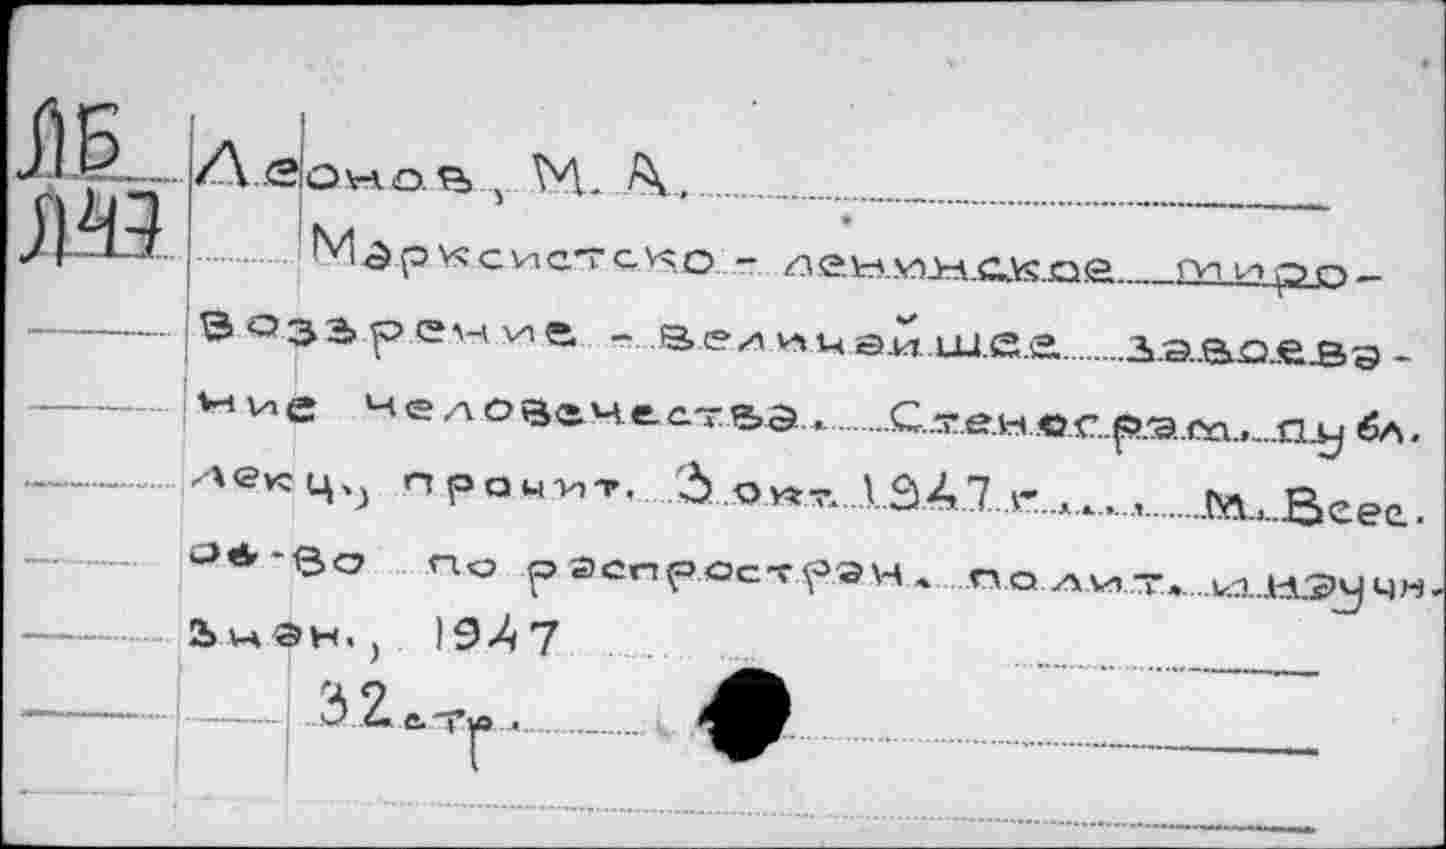 ЛБ
Л47
Леонов, М. А.
Марксистско - ленинское миро-
воззрение - величайшее завоева-
ние человечества. Стенограм. публ.
лекц., прочит. 3 окт. 1947 г. ... М. Всес.
об-во по распростран. полит. и научн.
знан., 1947
32 стр.